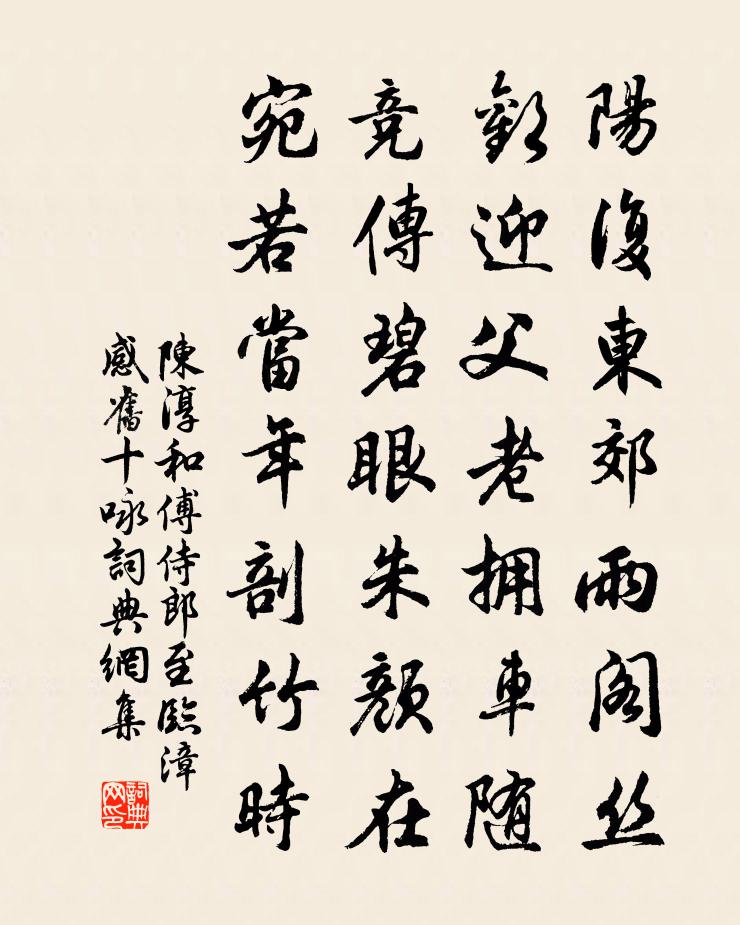 陽復東郊雨閣丝
歡迎父老拥車随
竞傳碧眼朱顏在
宛若當年剖竹時
陳淳和傅侍郎至臨漳
感舊十咏詞典網集
詞典网印